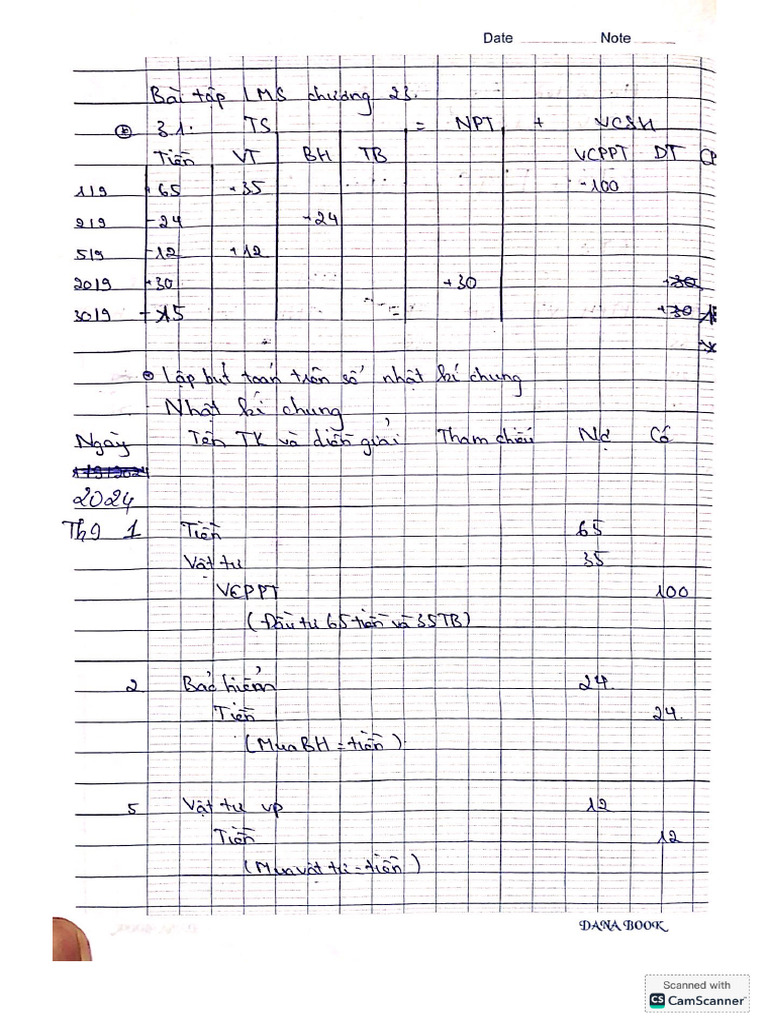 Date Note
Bài tập LMS chương 23.
3.1. TS = NPT + VCSH
Tiền VT BH TB VCPPT DT CP
1/9 +65 +35 +100
2/9 -24 +24
5/9 -12 +12
20/9 +30 +30 +30
30/9 -15 +30
Lập bút toán trên sổ nhật kí chung
Nhật kí chung
Ngày Tên TK và diễn giải Tham chiếu Nợ Có
1/9/2024
2024
Th9 1 Tiền 65
Vật tư 35
VCPPT 100
(Đầu tư 65 tiền và 35TB)
2 Bảo hiểm 24.
Tiền 24.
(Mua BH = tiền).
5 Vật tư vp 12
Tiền 12
(Mua vật tư = tiền)
DANA BOOK
Scanned with
CS CamScanner